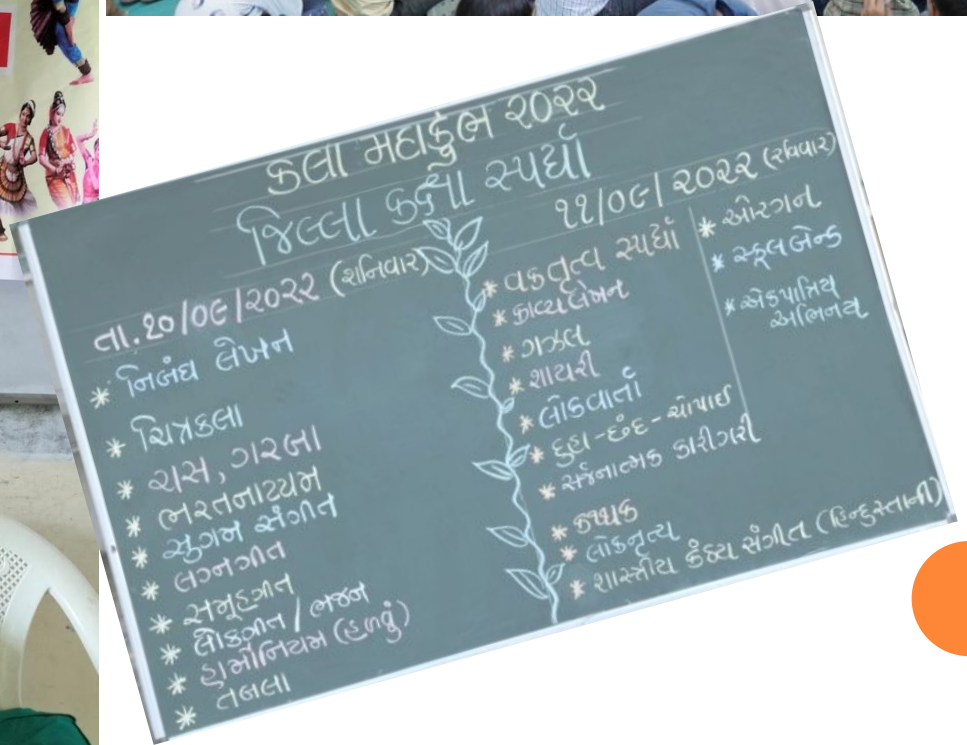 કલા મહાકુંભ ૨૦૨૨
જિલ્લા કક્ષા સ્પર્ધા
તા.૧૦/૦૯/૨૦૨૨ (શનિવાર)
* નિબંધ લેખન
* ચિત્રકલા
* રાસ, ગરબા
* ભરતનાટ્યમ
* સુગમ સંગીત
* લગ્નગીત
* સમૂહગીત
* લોકગીત / ભજન
* હાર્મોનિયમ (હળવું)
* તબલા
૧૧/૦૯/૨૦૨૨ (રવિવાર)
* વકતૃત્વ સ્પર્ધા
* કાવ્ય લેખન
* ગઝલ
* શાયરી
* લોકવાર્તા
* દુહા-છંદ-ચોપાઈ
* સર્જનાત્મક કારીગરી
* કથક
* લોકનૃત્ય
* શાસ્ત્રીય કંઠ્ય સંગીત (હિન્દુસ્તાની)
* ઓરગન
* સ્કૂલબેન્ડ
* એકપાત્રિય
અભિનય